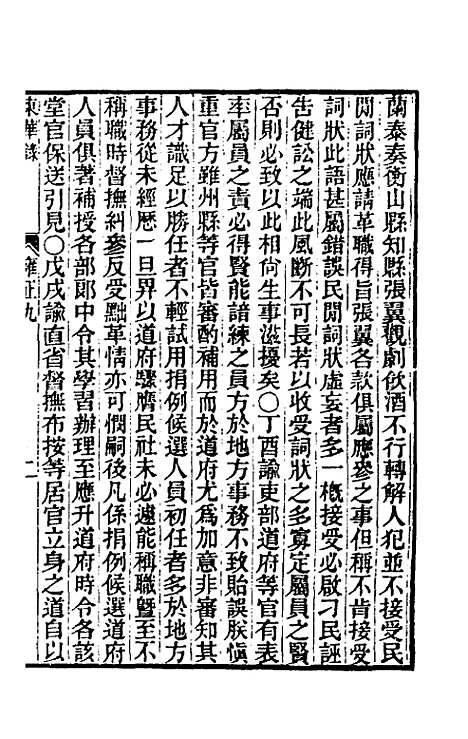 蘭泰奏衡山縣知縣張翼觀劇飲酒不行轉解人犯並不接受民
間詞狀應請革職得旨張翼各款俱屬應參之事但稱不肯接受
詞狀此語甚屬錯誤民間詞狀虛妄者多一槪接受必啟刁民誣
告健訟之端此風斷不可長若以收受詞狀之多寡定屬員之賢
否則必致以此相尙生事滋擾矣〇丁酉諭吏部道府等官有表
率屬員之責必得賢能諳練之員方於地方事務不致貽誤朕愼
重官方雖州縣等官皆審酌補用而於道府尤爲加意非審知其
人才識足以勝任者不輕試用捐例候選人員初任者多於地方
事務從未經歷一旦畀以道府驟膺民社未必遽能稱職曁至不
稱職時督撫糾參反受黜革情亦可憫嗣後凡係捐例候選道府
人員俱著補授各部郞中令其學習辦理至應升道府時令各該
堂官保送引見〇戊戌諭直省督撫布按等居官立身之道自以
東華錄 雍正九 二